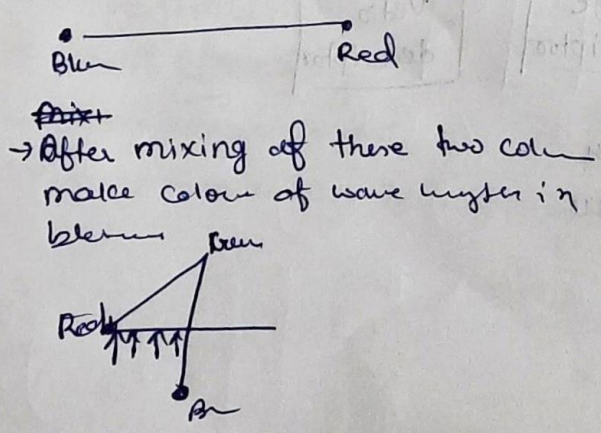 Blue Red
→ After mixing of these two colour
make colour of wave lengths in
between
Green
Red